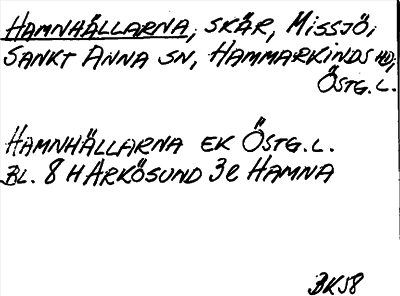 HAMNHÄLLARNA, SKÄR, MISSJÖ,
SANKT ANNA SN, HAMMARKINDS HD,
ÖSTG. L.
HAMNHÄLLARNA EK ÖSTG. L.
BL. 8 H ARKÖSUND 3e HAMNA
BK58